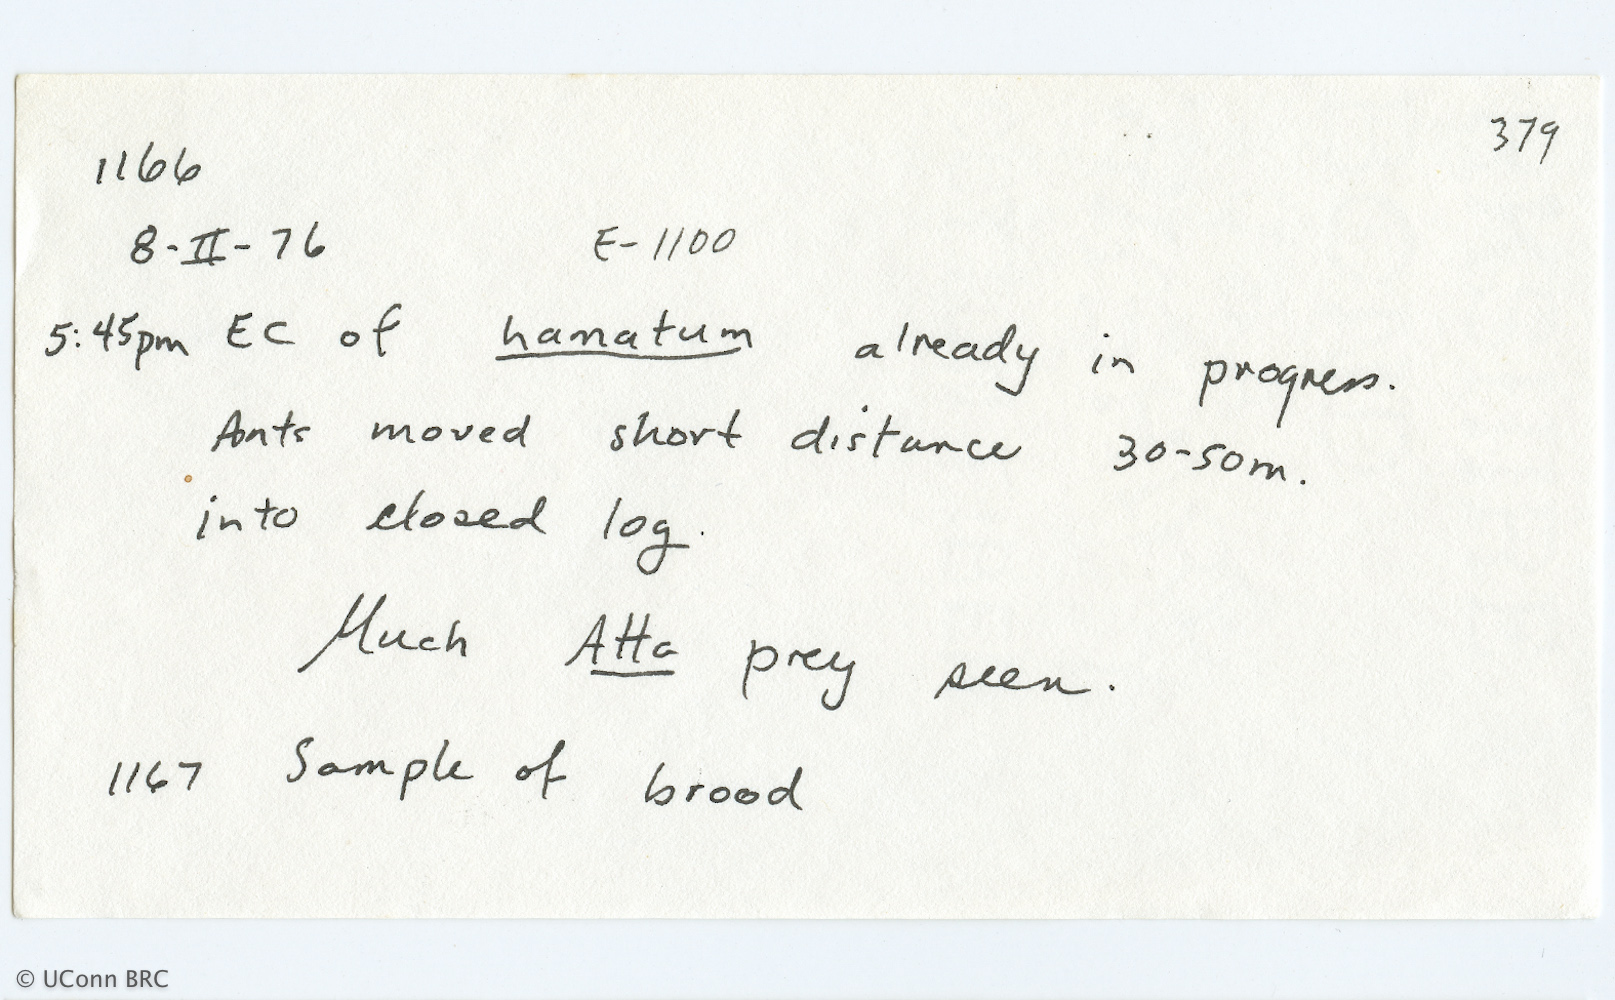 379
1166
8-II-76 E-1100
5:45pm EC of hamatum already in progress.
Ants moved short distance 30-50m.
into closed log.
Much Atta prey seen.
1167 Sample of brood
© UConn BRC